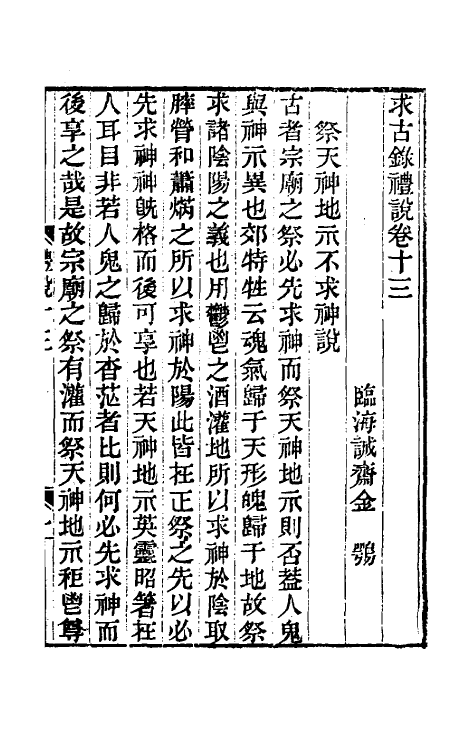 求古錄禮說卷十三
臨海誠齋金　鶚
祭天神地示不求神說
古者宗廟之祭必先求神而祭天神地示則否葢人鬼
與神示異也郊特牲云魂氣歸于天形魄歸于地故祭
求諸陰陽之義也用鬱鬯之酒灌地所以求神於陰取
膟膋和蕭焫之所以求神於陽此皆在正祭之先以必
先求神神旣格而後可享也若天神地示英靈昭著在
人耳目非若人鬼之歸於杳茫者比則何必先求神而
後享之哉是故宗廟之祭有灌而祭天神地示秬鬯尊
禮說十三